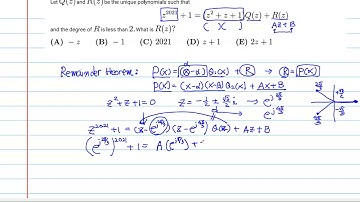 Let Q(z) and R(z) be the unique polynomials such that
z^2021 + 1 = (z² + z + 1)Q(z) + R(z)
( X ) AZ+B
and the degree of R is less than 2. What is R(z)?
(A) −z (B) −1 (C) 2021 (D) z + 1 (E) 2z + 1
Remainder Theorem: P(x) = (x-α) Q(x) + R → R = P(α)
P(x) = (x-α)(x-β) Q₂(x) + Ax+B
z²+z+1=0 z = -½ ± √3/2 i → e^j2π/3
e^j4π/3
2π/3
4π/3
z^2021 +1 = (z- e^j2π/3)(z- e^j4π/3) Q(z) + Az+B
(e^j2π/3)^2021 + 1 = A(e^j2π/3) +